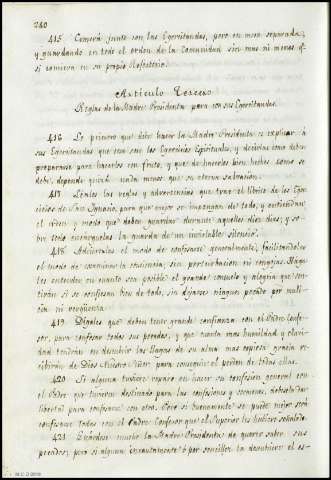 240
415 Comerá junto con las Egercitandas, pero en mesa separada,
y guardando en todo el orden de la Comunidad sin mas ni menos q.
si comiera en su propio Refectorio.
Artículo Tercero
Reglas de la Madre Presidenta para con sus Egercitandas.
416 Lo primero que debe hacer la Madre Presidenta es explicar á
sus Egercitandas que son los Egercicios Espirituales, y decirlas como deben
prepararse para hacerlos con fruto, y que de hacerlos bien hechos como se
debe, depende quizá nada menos que su eterna salvacion.
417 Léales las reglas y advertencias que trae el librito de los Eger
cicios de San Ignacio, para que mejor se impongan de todo, y entiendan
el orden y modo que deben guardar durante aquellos diez dias; y so
bre todo encárguelas la guarda de un inviolable silencio.
418 Adviértalas el modo de confesarse generalmente, facilitándolas
el modo de examinar la conciencia, sin perturbacion ni congojas. Haga
les entender en cuanto sea posible el grande consuelo y alegria que sen
tirán si se confiesan bien de todo, sin dejarse ningun pecado por mali
cia ni vergüenza.
419 Dígales que deben tener grande confianza con el Padre Confe
sor, para confesar todos sus pecados, y que cuanta mas humildad y clari
dad tendrán en descubrir las llagas de su alma mas copiosa gracia re
cibirán de Dios Nuestro Señor para conseguir el perdon de todas ellas.
420 Si alguna tuviere reparo en hacer su confesion general con
el Padre que tuvieren destinado para las confesiones y sermones, déjesela
libertad para confesarse con otro. Pero si buenamente se puede mejor será
confesarse todas con el Padre Confesor que el Superior les hubiere señalado.
421 Guárdese mucho la Madre Presidenta de querer saber sus
pecados; pero si alguna incautamente ó por sencillez la descubriere el es